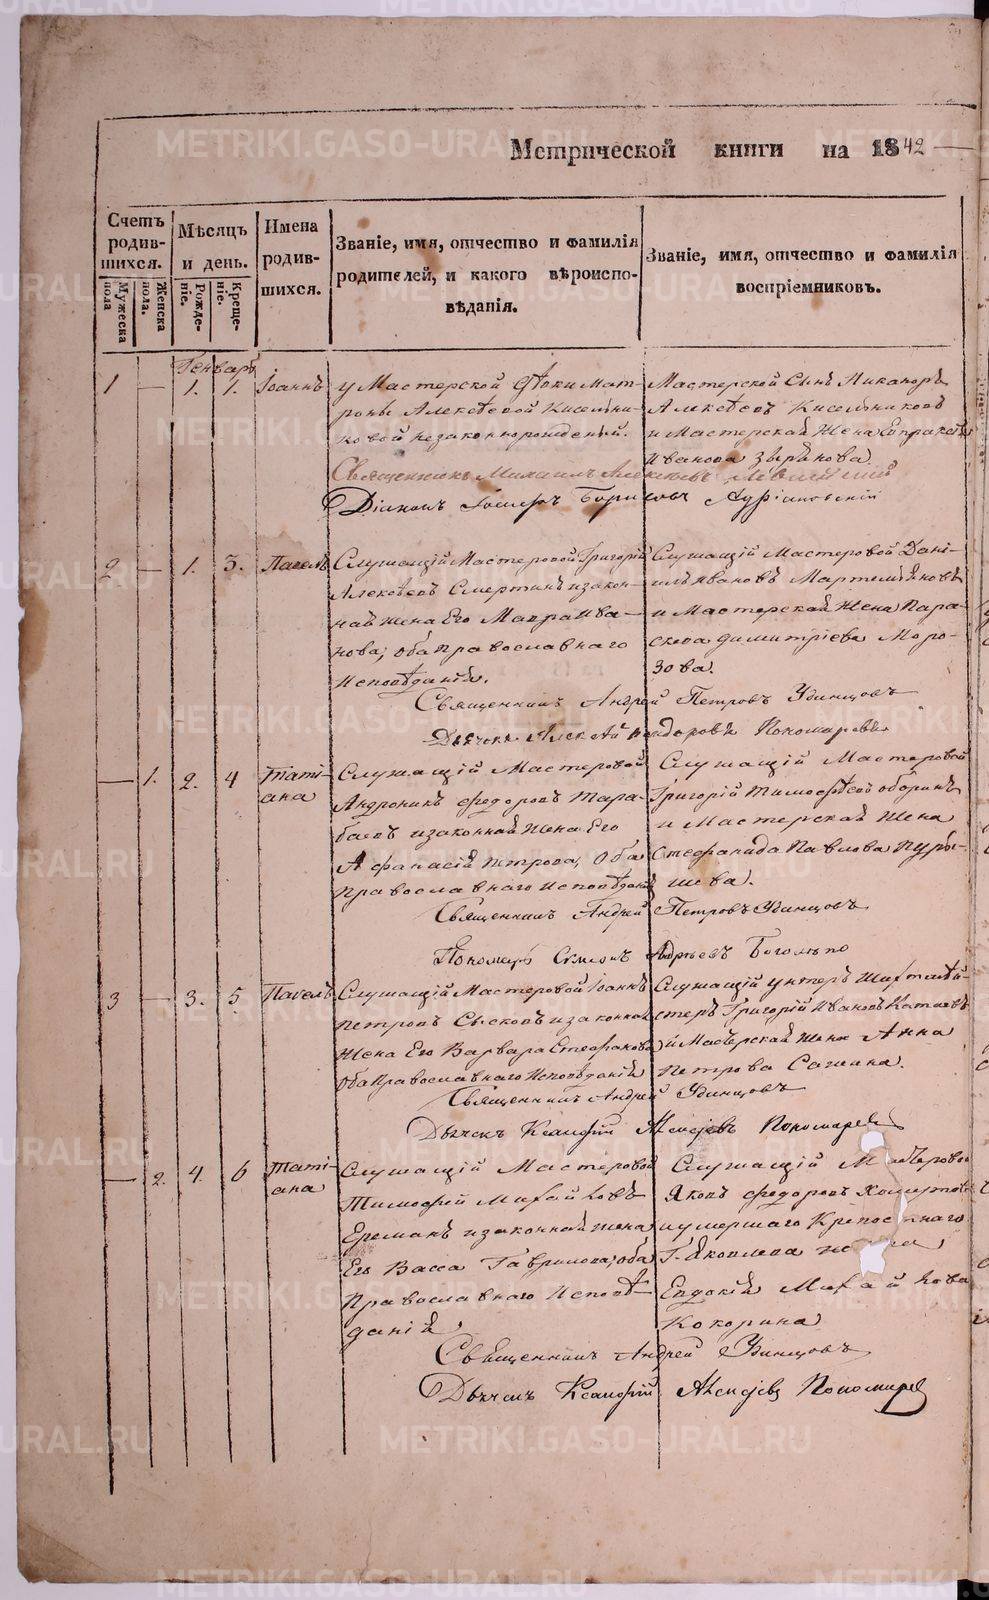 Метрической книги на 1842
Счетъ родив-шихся.
Мужеска пола
Женска пола.
Мѣсяцъ и день.
Рожде-ніе.
Креще-ніе.
Имена родив-шихся.
Званіе, имя, отчество и фамилія
родителей, и какого вѣроиспо-
вѣданія.
Званіе, имя, отчество и фамилія
воспріемниковъ.
Генварь
1 — 1. 1. Іоаннъ
у Мастерской Дѣвки Мат-
роны Алексѣевой Кисельни-
ковой незаконнорожденый.
Мастерской Сынъ Никаноръ
Алексѣевъ Кисельниковъ
и Мастерская Жена Евпраксія
Иванова Зырянова
Священникъ Михаилъ
Діаконъ Іосифъ Борисовъ Адріановскій
2 — 1. 3. Павелъ
Служащій Мастеровой Григорій
Алексѣевъ Смертинъ и закон-
ная жена Его Мавра Ива-
нова; оба православнаго
Исповѣданія.
Служащій Мастеровой Дані-
илъ Ивановъ Мартемьяновъ
и Мастерская Жена Пара-
скова Димитріева Моро-
зова.
Священникъ Андрей Петровъ Удинцовъ
Дьячекъ Пономаревъ
— 1. 2. 4 Таті-
ана
Служащій Мастеровой
Андроникъ Федоровъ Тара-
баевъ и законная Жена Его
Афанасія Петрова, Оба
Православнаго Исповѣданія
Служащій Мастеровой
Григорій Тимофѣевъ Оборинъ
и Мастерская Жена
Стефанида Павлова Пуры-
шева.
Священникъ Андрей Петровъ Удинцовъ
Пономарь Симеонъ Боголѣпо
3 — 3. 5 Павелъ
Служащій Мастеровой Іоаннъ
Петровъ Сысковъ и законная
Жена Его Варвара Стефанова
Оба Православнаго Исповѣданія
Служащій унтеръ Шихтмей-
стеръ Григорій Ивановъ Катаевъ
и Мастерская Жена Анна
Петрова Сагина.
Священникъ Андрей Удинцовъ
Дьячекъ Ксанфій Алексѣевъ Пономаревъ
— 2. 4. 6 Таті-
ана
Служащій Мастеровой
Тимофей Михайловъ
Ереминъ и законная жена
Его Васса Гаврилова; оба
Православнаго Исповѣ-
данія
Служащій Мастеровой
Яковъ Федоровъ
и умершаго Крепостнаго
Г. Яковлева
Евдокія Михайлова
Кокорина
Священникъ Андрей Удинцовъ
Дьячекъ Ксанфій Алексѣевъ Пономаревъ
METRIKI.GASO-URAL.RU